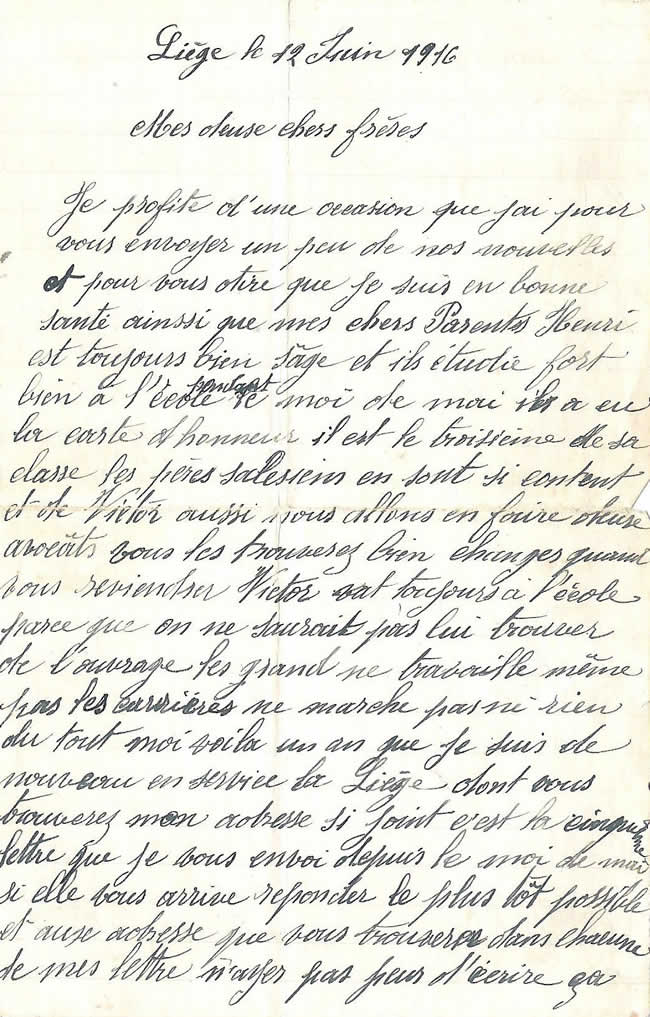 Liège le 12 Juin 1916
Mes deuse chers frères
Je profite d'une occasion que j'ai pour
vous envoyer un peu de nos nouvelles
et pour vous dire que je suis en bonne
santé ainsi que mes chers Parents Henri
est toujours bien sâge et ils étudie fort
bien a l'école pendant le moi de mai il a eu
la carte d'honneur il est le troisième de sa
classe les pères salesiens en sont si content
et de Victor aussi nous allons en faire deuse
avocâts vous les trouverez bien changes quand
vous reviendrer Victor vat toujours à l'école
parce que on ne saurait pas lui trouver
de l'ouvrage les grand ne travaille même
pas les carrières ne marche pas ni rien
du tout moi voila un an que je suis de
nouveau en service la Liège dont vous
trouverez mon adresse si joint c'est la cinquième
lettre que je vous envoi depuis le moi de mai
si elle vous arrive reponder le plus tôt possible
et aux adresse que vous trouverer dans chacune
de mes lettre n'ayer pas peur d'écrire ça